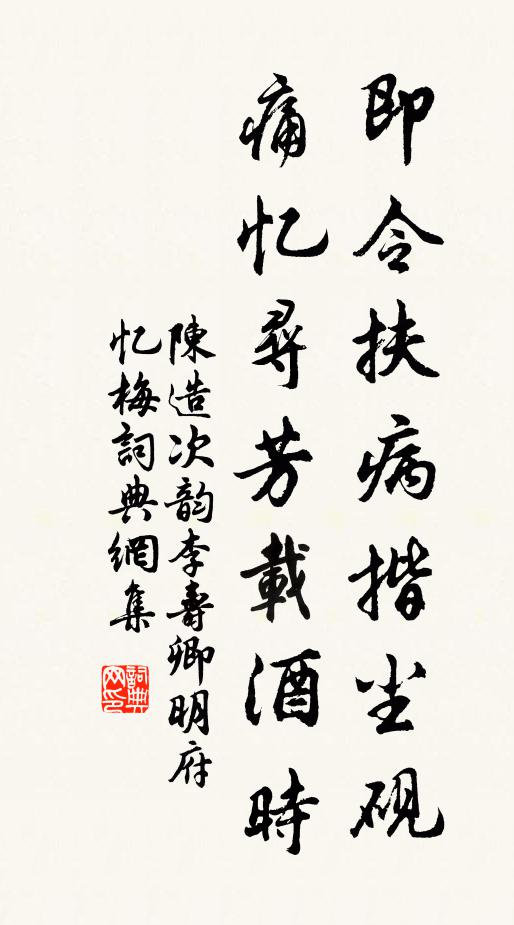 即令扶病揩尘砚
痛忆尋芳載酒時
陳造次韵李壽卿明府
忆梅詞典網集
詞典网印